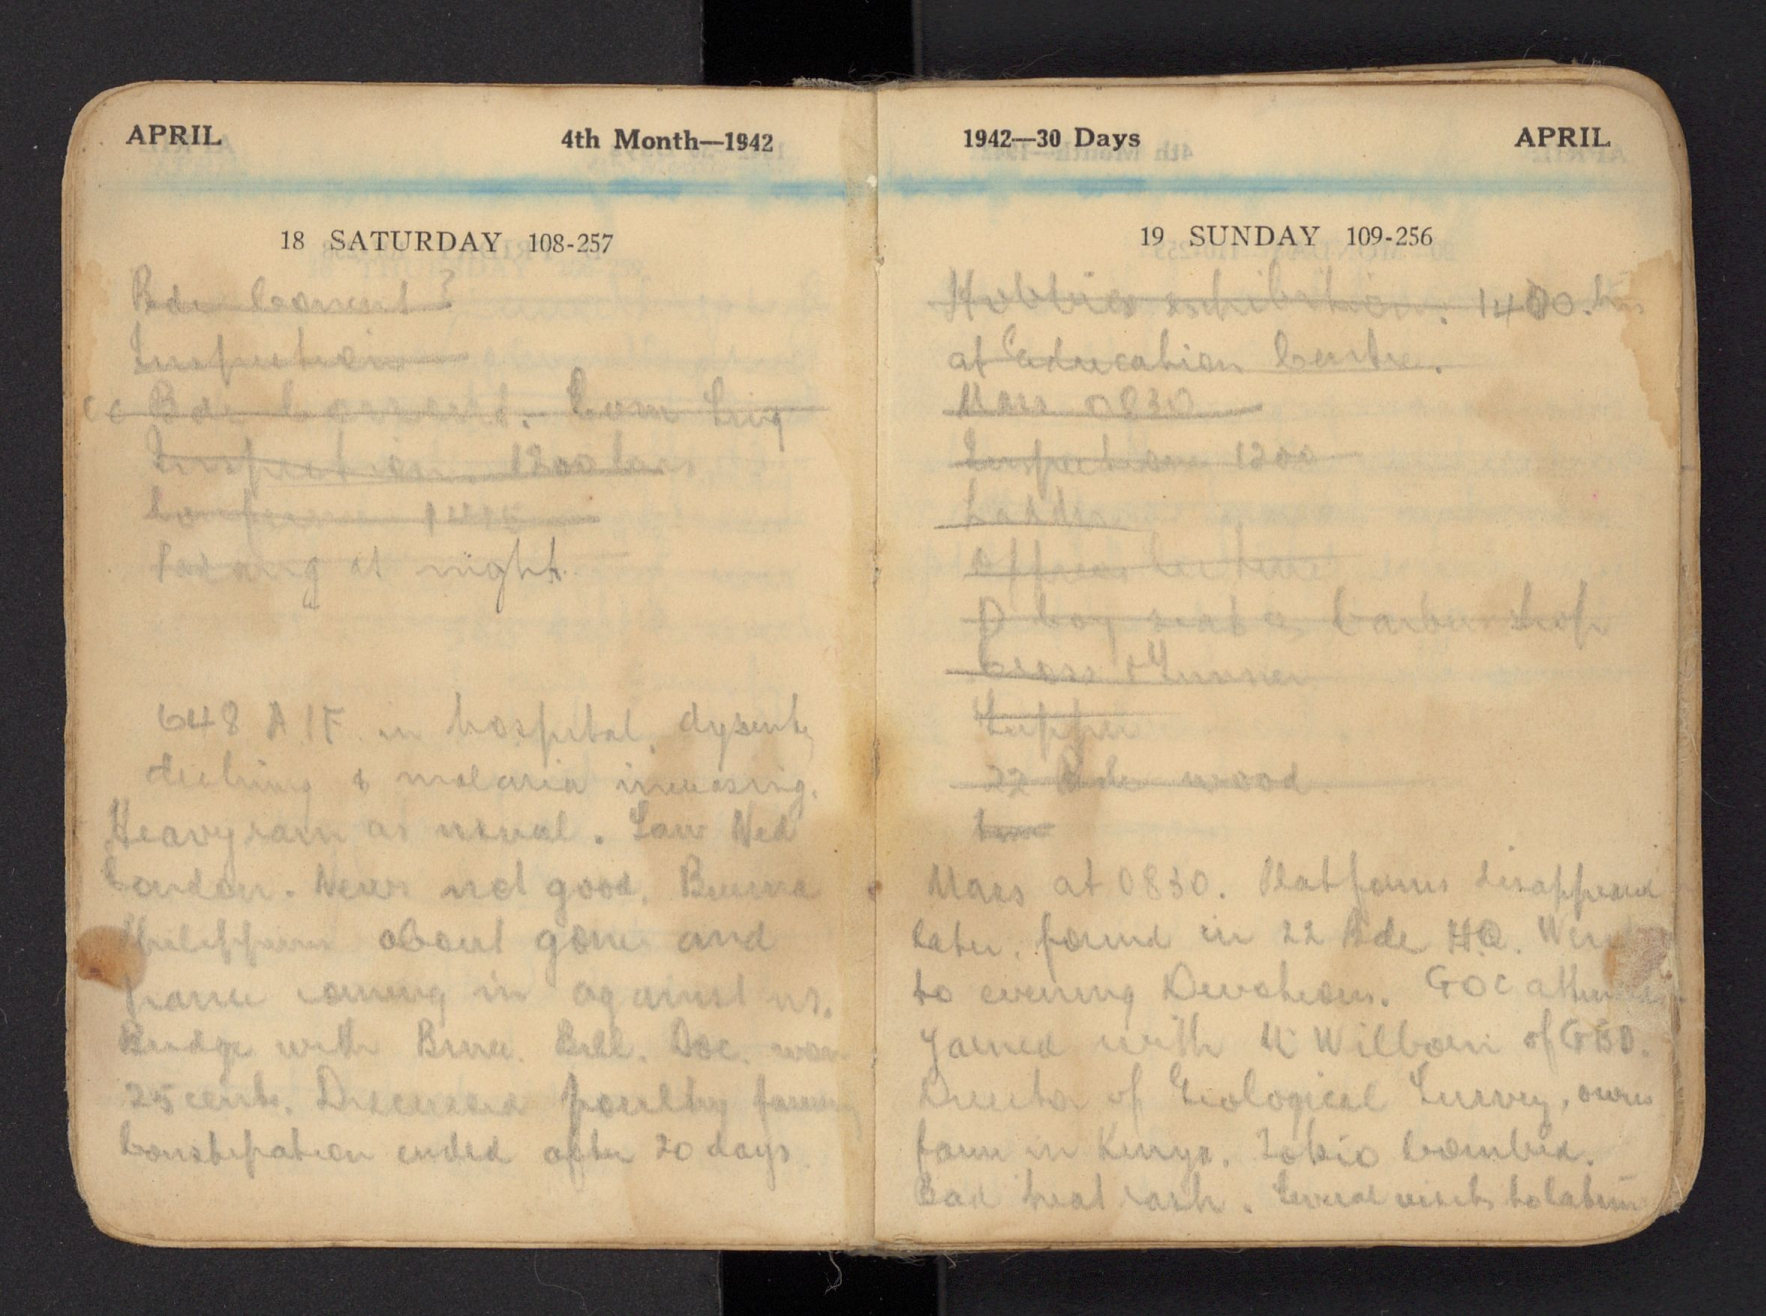 APRIL 4th Month—1942
18 SATURDAY 108-257
Bde Concert?
Inspection
Bde Concert.
Inspection 1200 hrs
1415
Padang at night.
648 AIF in hospital, dysentry
declining & malaria increasing.
Heavy rain as usual. Saw Ned
Condon. News not good. Burma
Philippines about gone and
France coming in against us.
Bridge with Bruce. Bill. Doc. won
25 cents. Discussed poultry farming
Constipation ended after 20 days
1942—30 Days APRIL
19 SUNDAY 109-256
Hobbies exhibition. 1400. hrs
at Education Centre.
Mass 0830
Inspection 1200
Ladder
Officers lecture
barber shop
Cross
Supper
22 Bde wood
Mass at 0830. Platforms disappeared
later, found in 22 Bde HQ. Went
to evening Devotions. GOC
Yarned with Mr of
Director of Geological Survey, owns
farm in Kenya. Tokio bombed.
Bad heat rash. Several visits to latrine